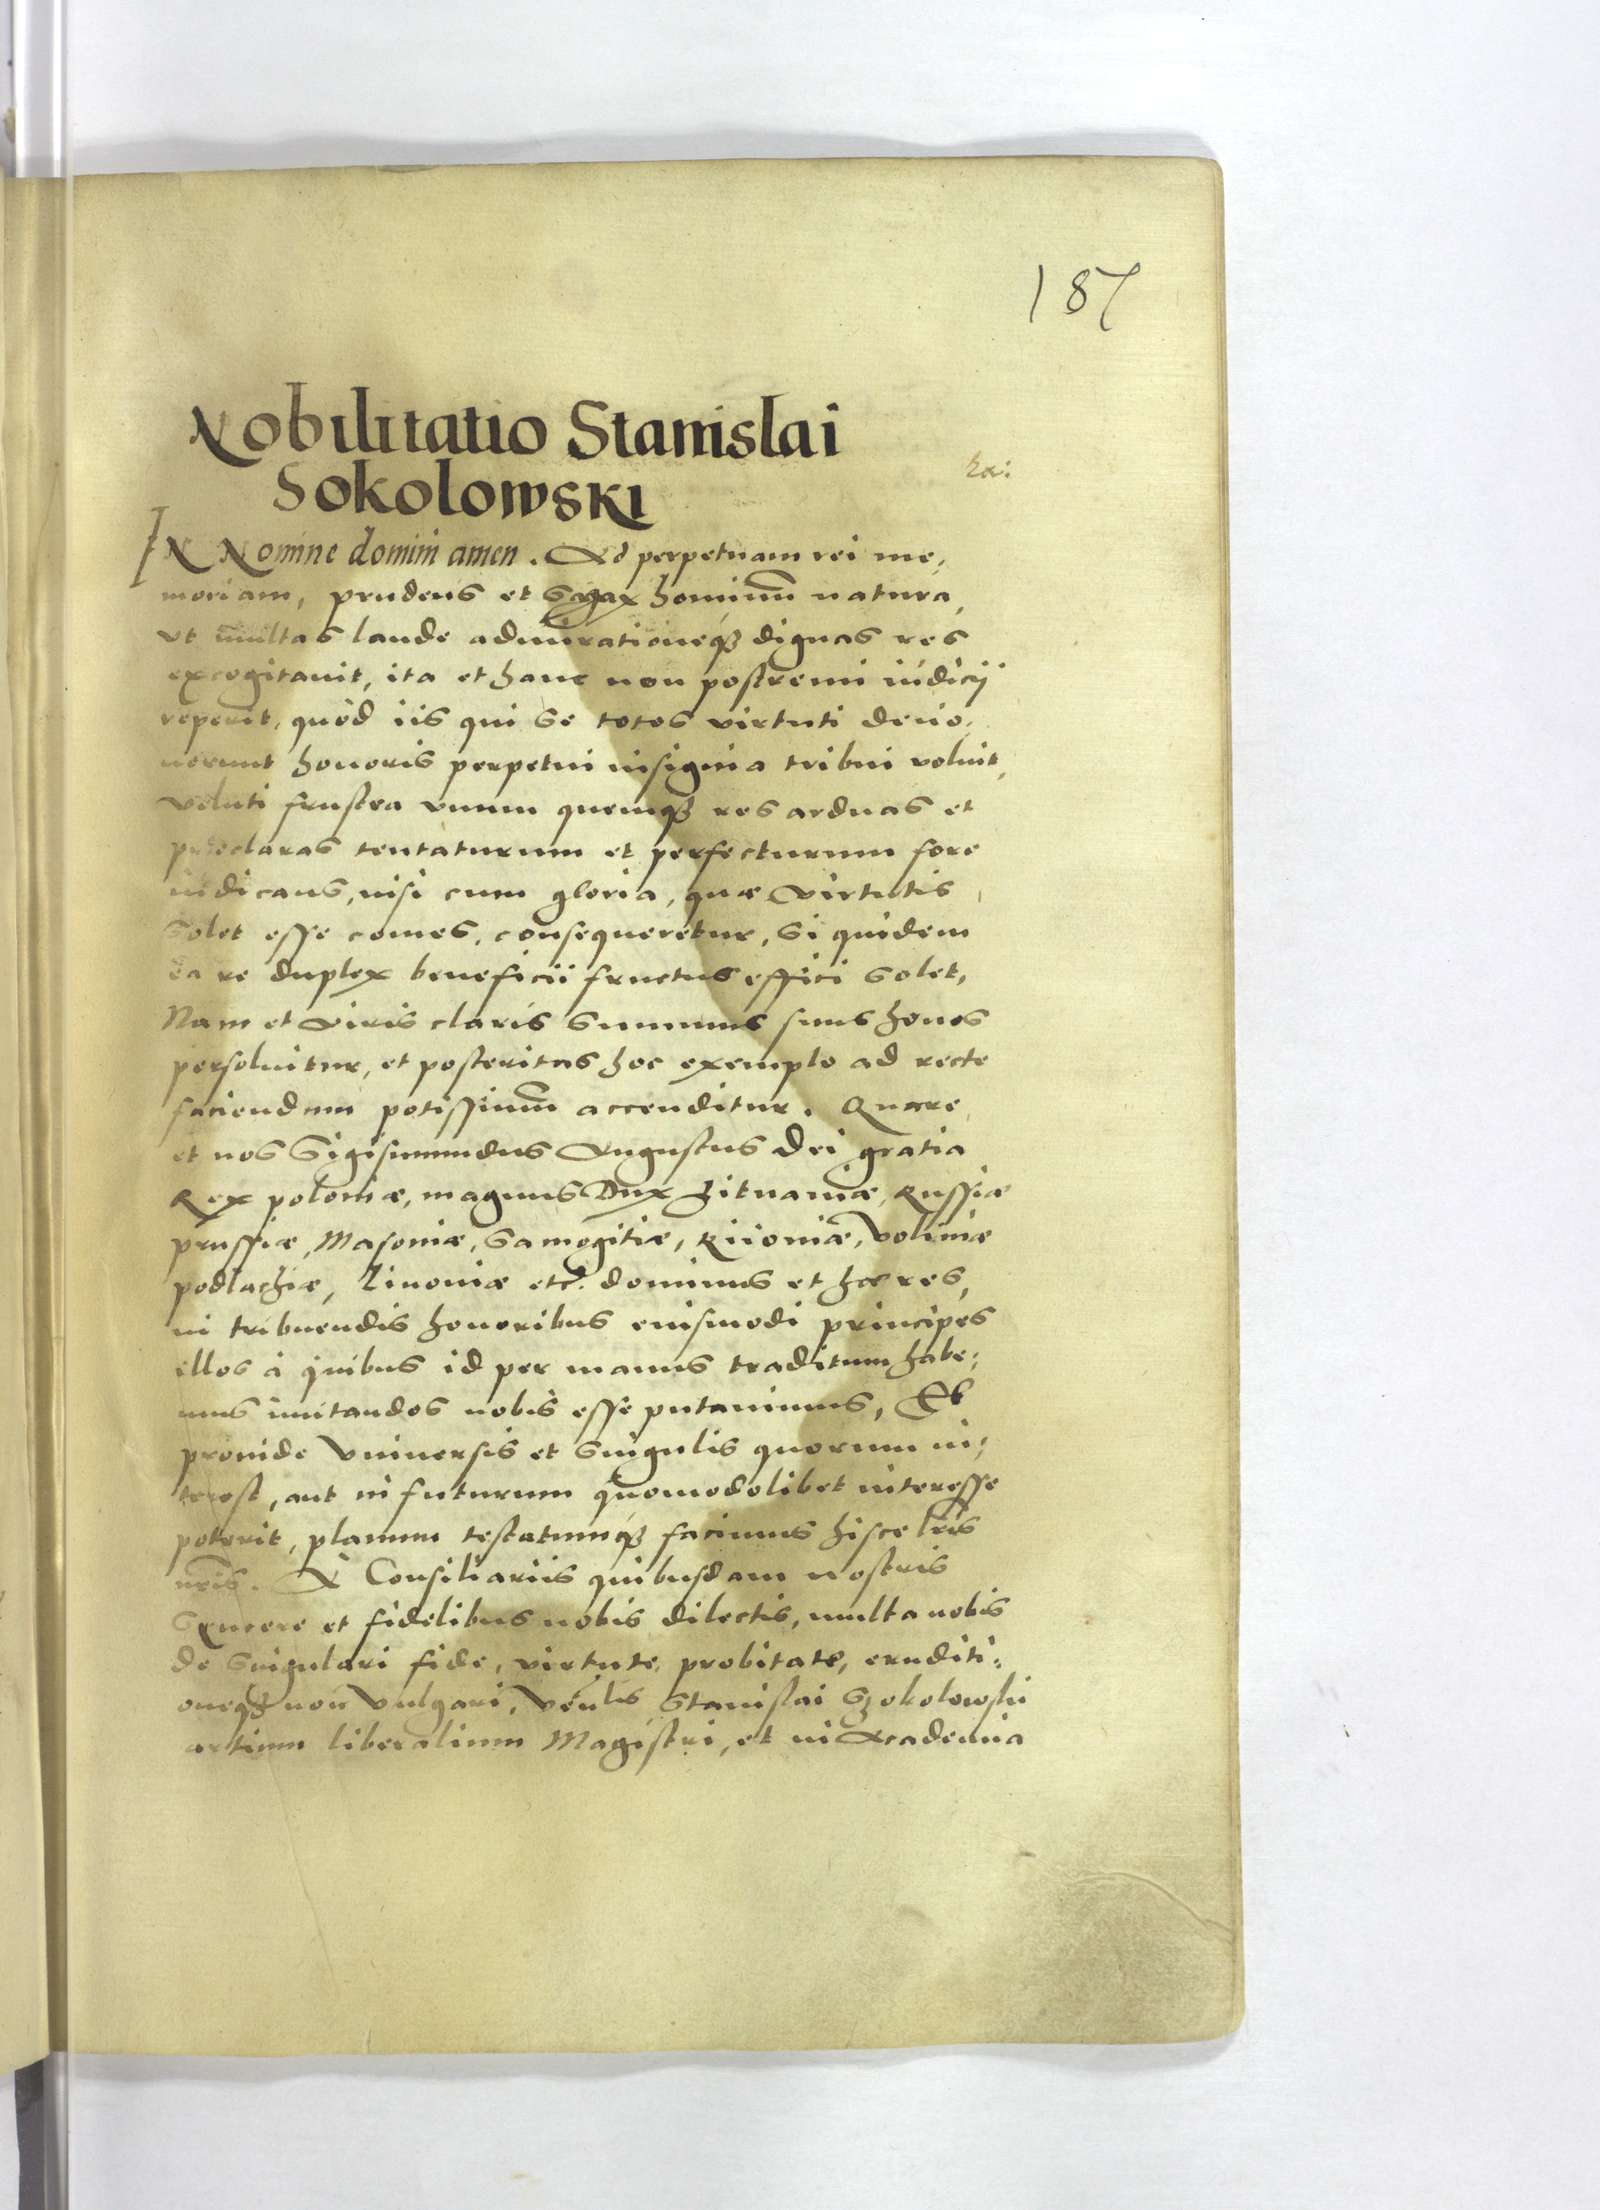 187
Nobilitatio Stanislai
Sokolowski
IN Nomine domini amen. Ad perpetuam rei me,
moriam, prudens et sagax hominum natura,
ut multas laude admirationeque dignas res
excogitauit, ita et hanc non postremi iudicij
reperit, quòd iis qui se totos virtuti deuo,
uerunt honoris perpetui insignia tribui voluit,
veluti frustra unum quemque res arduas et
præclaras tentaturum et perfecturum fore
iudicans, nisi cum gloria, quæ virtutis
solet esse comes, consequeretur, Si quidem
ea re duplex beneficii fructus effici solet,
Nam et viris claris summus suus honos
persoluitur, et posteritas hoc exemplo ad recte
faciendum potissimum accenditur. Quare
et nos Sigismundus Augustus Dei gratia
Rex poloniæ, magnus Dux Lituaniæ, Russiæ
prussiæ, Masoniæ, Samogitiæ, Kiioniæ, Voliniæ
podlachiæ, Liuoniæ etc. dominus et hæres,
in tribuendis honoribus eiusmodi principes
illos à quibus id per manus traditum habe:
mus imitandos nobis esse putauimus, Et
prouide Vniuersis et singulis quorum in:
terest, aut in futurum quomodolibet interesse
poterit, planum testatumque facimus hisce lris
nris. A Consiliariis quibusdam nostris
syncere et fidelibus nobis dilectis, multa nobis
de singulari fide, virtute, probitate, eruditi:
oneque non vulgari, Venlis Stanislai Szokolowski
artium liberalium Magistri, et in Academia